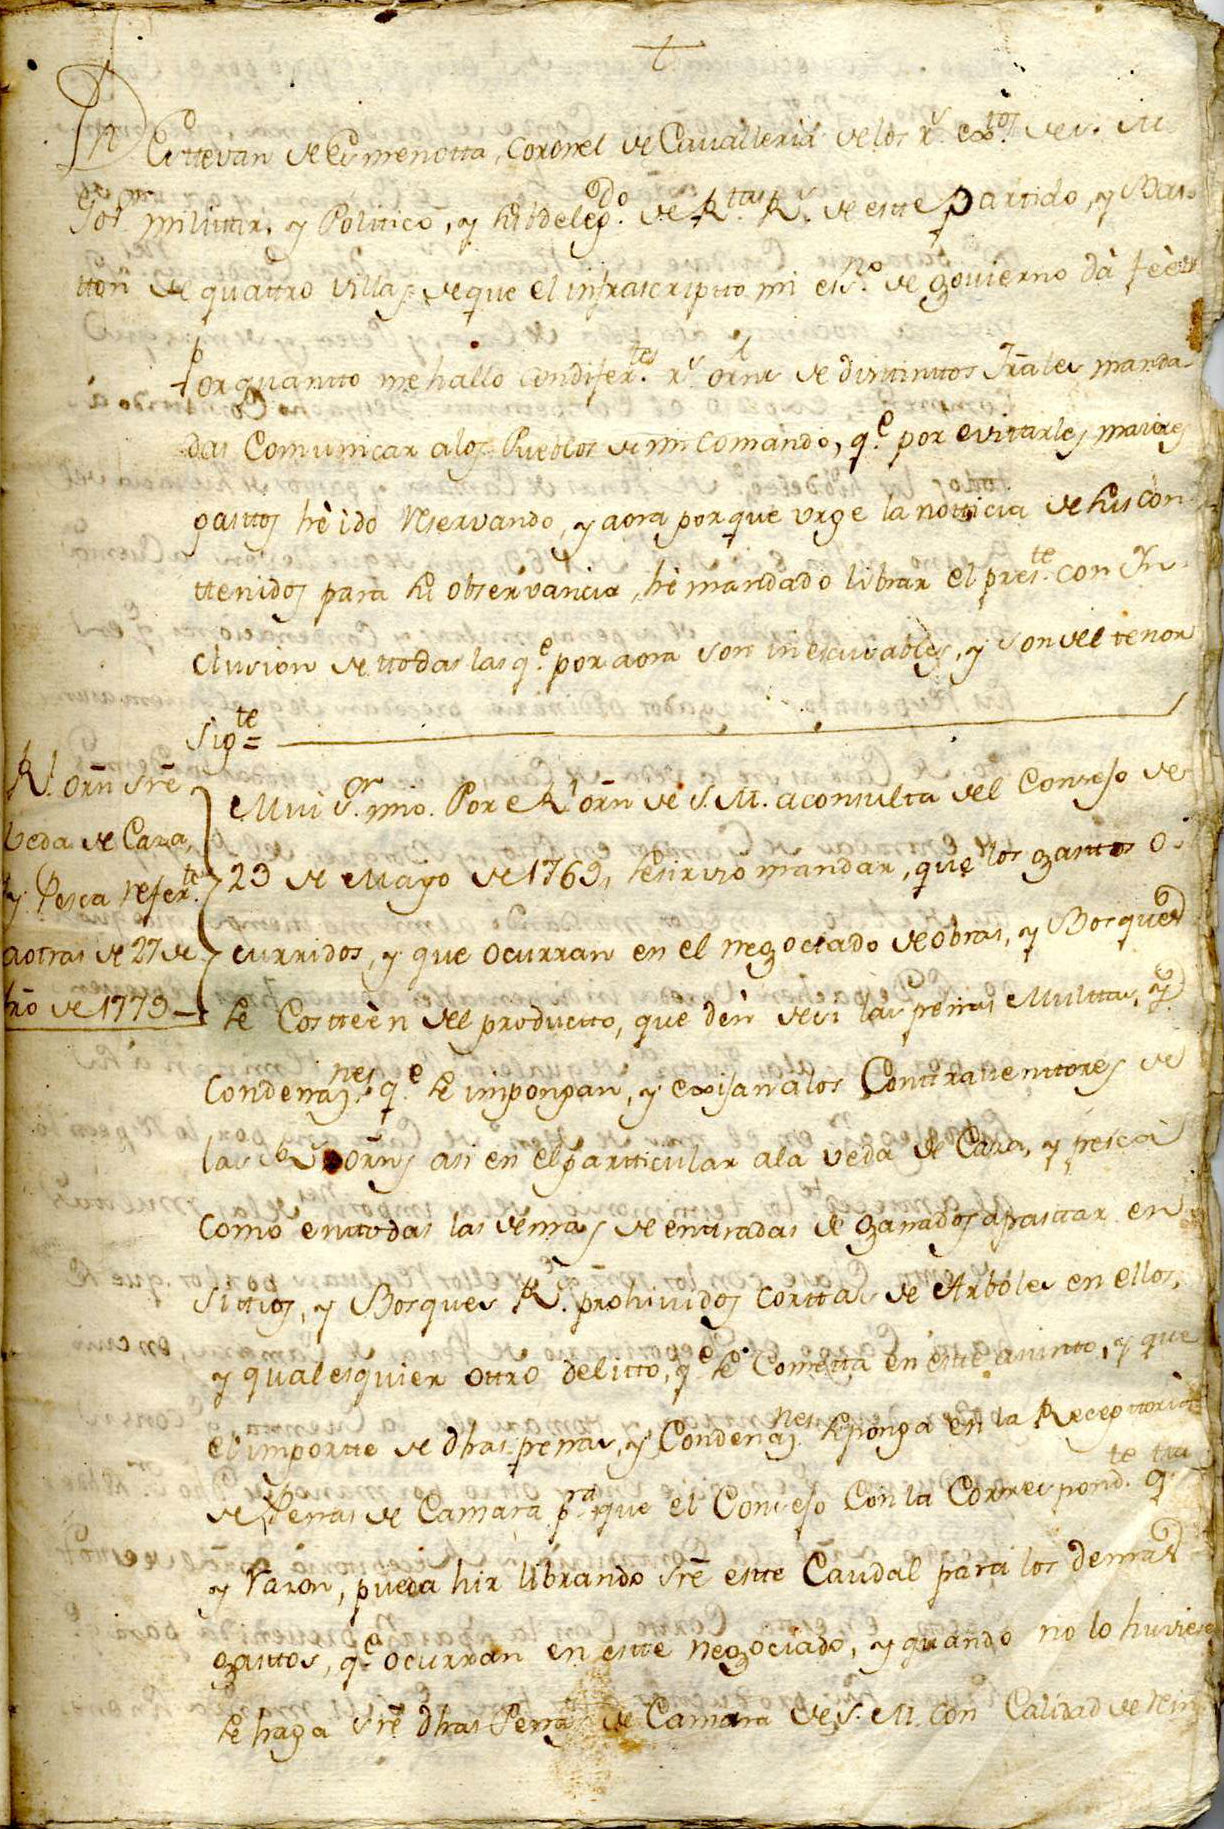 +
Dn Esttevan de Esmenotta, Coronel de Cavalleria de los Rs. extos. de S. M.
Gor. militar, y Politico, y subdelegdo. de Rtas. Rs. de este Partido, y Bas-
tton de quattro villas, de que el infrascriptto mi esno. de govierno dà feè
Por quantto me hallo con diferttes. Rs. ornes de disttinttos Trāles manda-
das Comunicar a los Pueblos de mi Comando, qe. por evitarles maiores
gasttos hè ido reservando, y aora porque urge la notticia de sus con-
ttenidos para su observancia, hè mandado librar el preste. con In-
clusion de ttodas las qe. por aora son inexcusables, y son del tenor
Sigte =
Rl. Orñ sr̃e
beda de Caza,
y Pesca referte.
a otras de 27 de
hr̃o de 1779
Mui Sor. mio. Por Rl. orñ de S. M. a consulta del Consejo de
23 de Mayo de 1769, se sirvio mandar, que los gasttos o-
curridos, y que ocurran en el negociado de obras, y Bosques
se Costteèn del productto, que dèn de si las penas Multtas, y
Condenaznes. qe. se impongan, y exijan a los Conttravenittores de
las Rs. orñs asi en el partticular a la veda de Caza, y pesca
como en ttodas las demas de enttradas de ganados a pasttar en
Sittios, y Bosques Rs. prohividos corttas de Arboles en ellos,
y qualesquier ottro delitto, qe. se Cometta en estte asuntto, y que
el importte de dhas penas, y Condenaznes. se ponga en la Recepttoria
de Penas de Camara pra. que el Consejo Con la Correspondte. qtta
y razon, pueda hir librando sr̃e estte Caudal para los demas
gasttos, qe. ocurran en estte negociado, y quando no lo huviese
se haga sr̃e dhas Penas de Camara de S. M. con Calidad de rein-